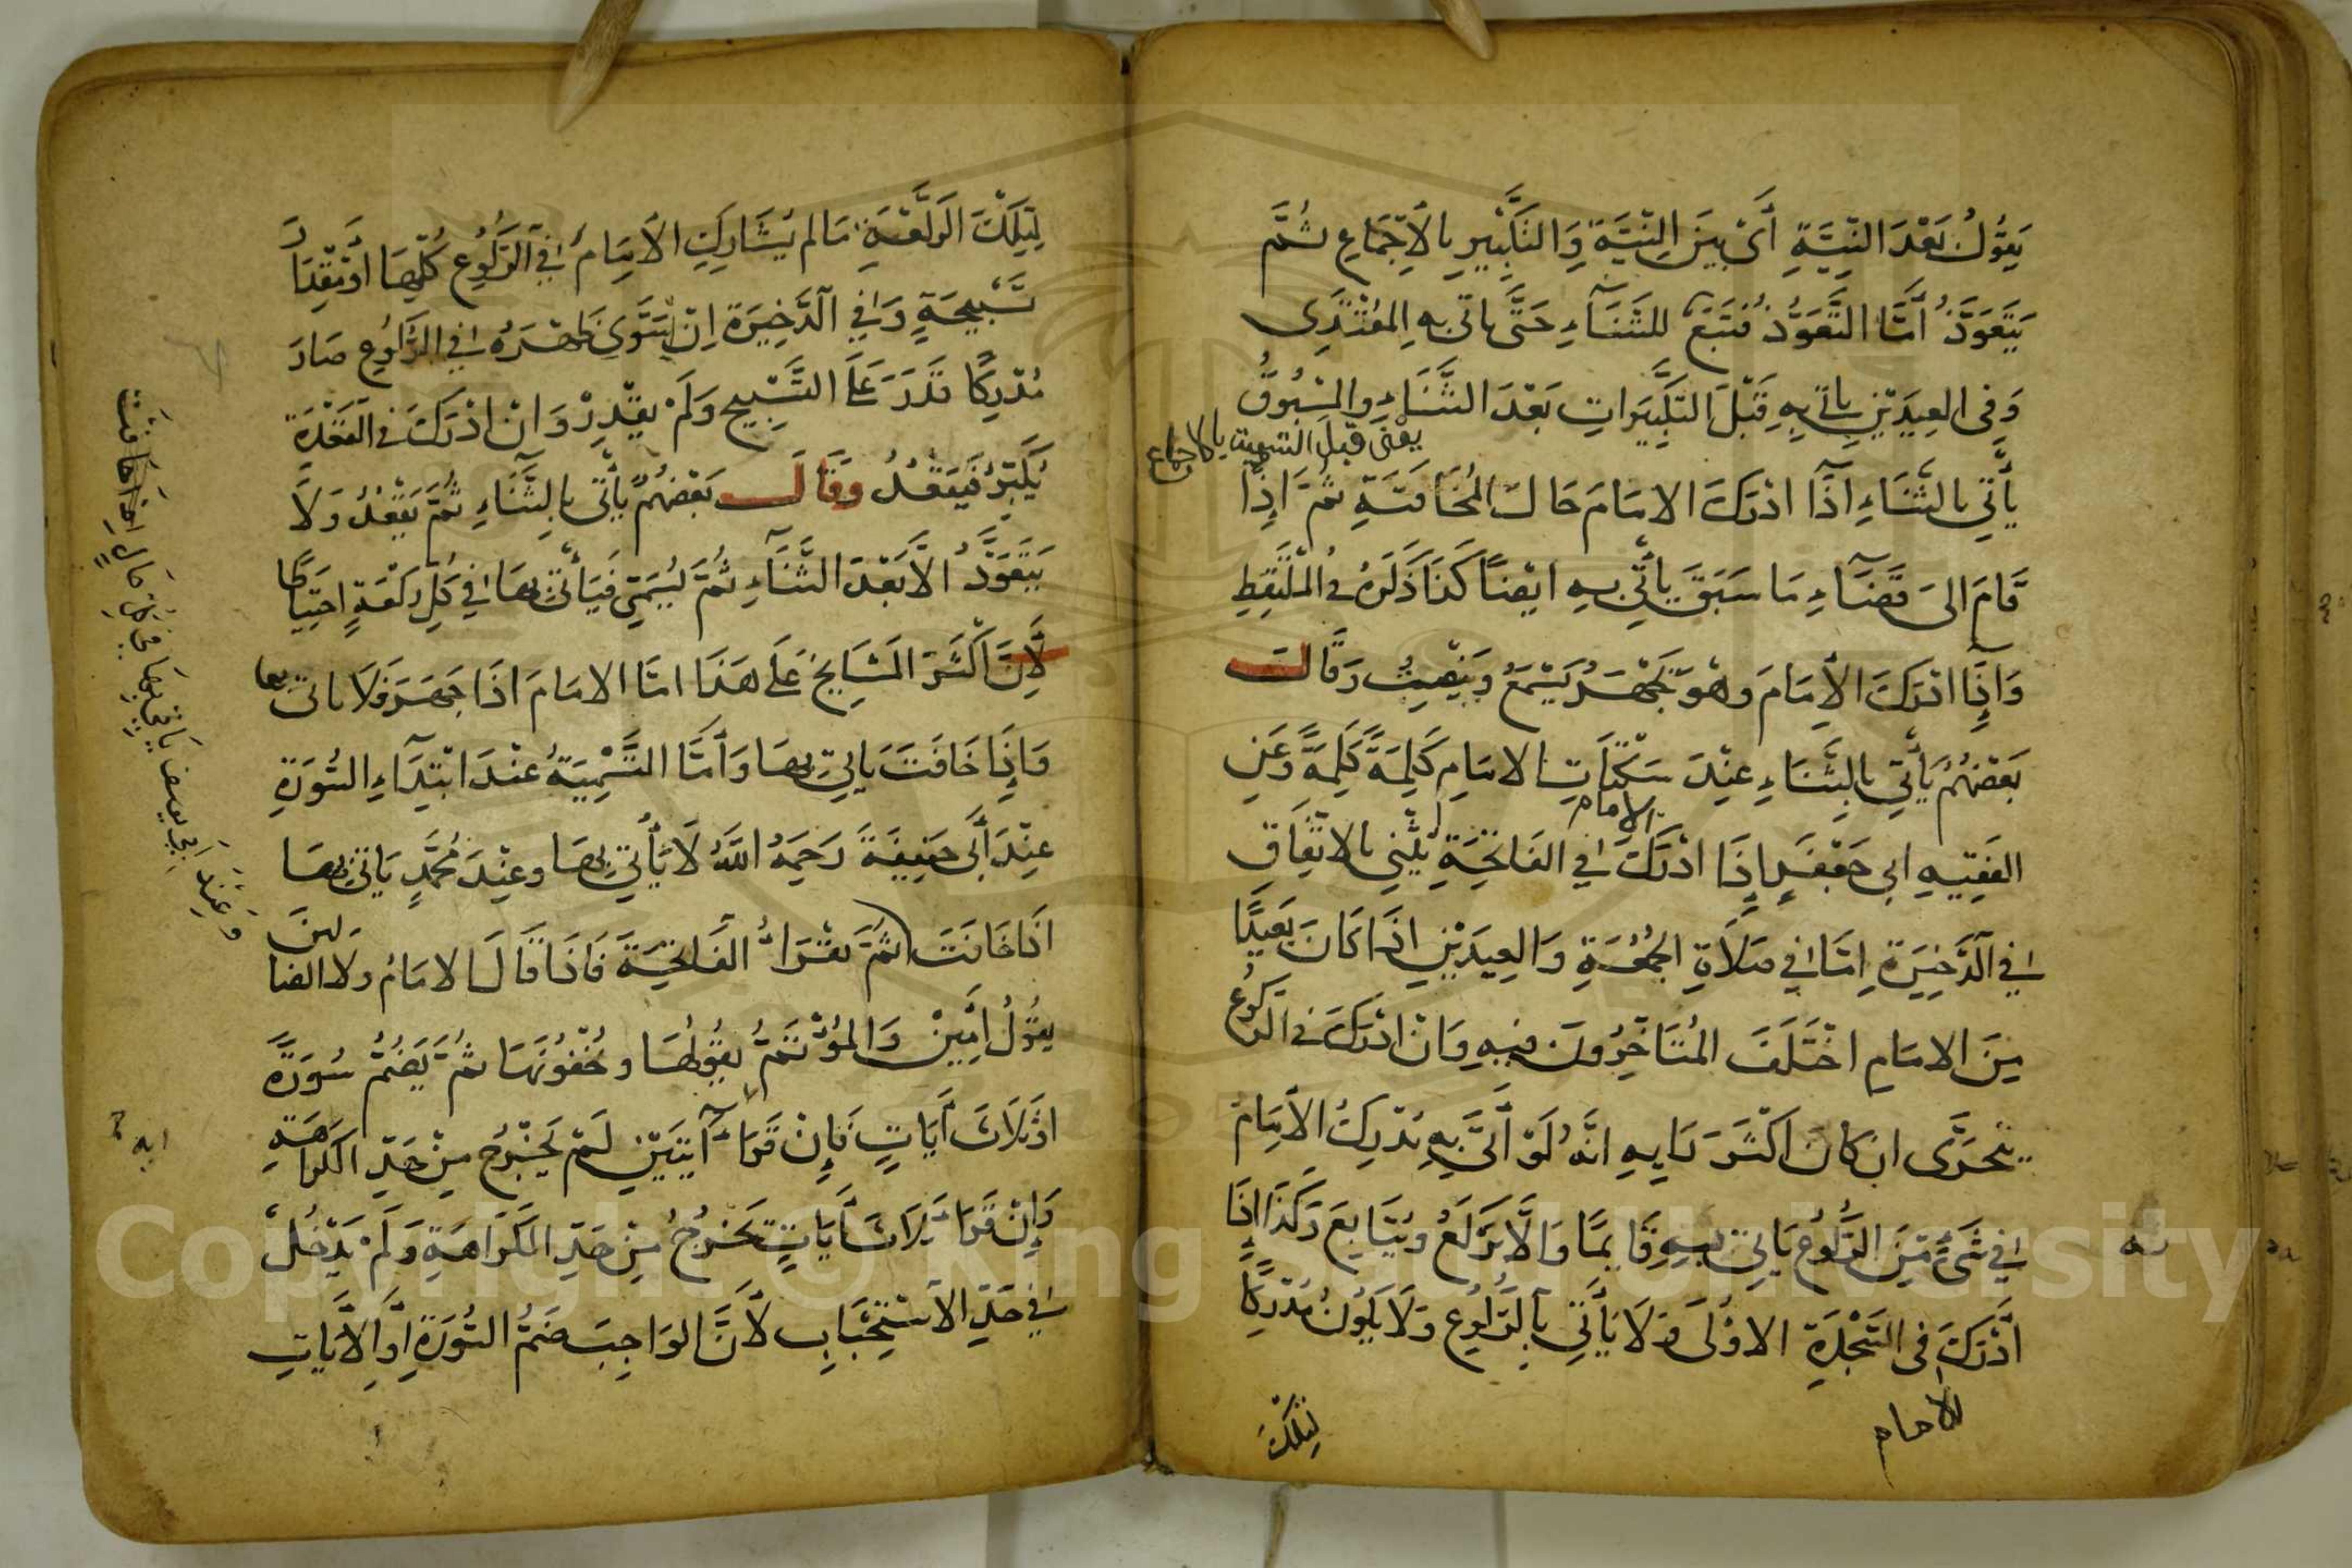 يَقُولُ بَعْدَ النِّيَّةِ أَىْ بَيْنَ النِّيَّةِ وَالتَّكْبِيرِ بِالْاِجْمَاعِ ثُمَّ
يَتَعَوَّذُ أَمَّا التَّعَوُّذُ فَتَبَعٌ للثَّنَآءِ حَتَّى يأتى بِهِ المُقْتَدِى
وَفِى العِيدَيْنِ يأتى بِهِ قَبْلَ التَّكْبِيرَاتِ بَعْدَ الثَّنَاءِ والمَسْبُوقُ
يعْنى قَبْلَ التسمية بالاجماع
يَأْتِي بالثَّنَاءِ اِذَا ادْرَكَ الامَامَ حَالَ المُخَافَتَةِ ثُمَّ اِذَا
قَامَ الىَ قَضَآءِ مَا سَبَقَ يَأْتِي بِهِ ايْضًا كَذَا ذَكَرَهُ فى المُلْتَقِطِ
وَاِذَا ادْرَكَ الْاِمَامَ وَهُوَ يَجْهَرُ يَسْمَعُ وَيَنْصِتُ وَقَالَ
بَعْضُهُمْ يَأْتِي بِالثَّنَاءِ عِنْدَ سَكْتَاتِ الامَامِ كَلِمَةً كَلِمَةً وَعَنِ
الامام
الفَقِيهِ ابى جَعْفَرٍ اِذَا ادْرَكَ فِي الفَاتِحَةِ يُثْنِي بالاتِّفَاقِ
فِي الذَّخِيرَةِ اِمَّا فِي صَلَاةِ الجُمُعَةِ وَالعِيدَيْنِ اذَا كَانَ بَعِيدًا
مِنَ الامَامِ اخْتَلَفَ المُتَاخِّرُونَ فِيهِ وَانْ ادْرَكَ فى الرَّكُوعِ
يتحَرَّى ان كَانَ اكْثَرَ رَايِهِ انَّهُ لَوْ أَتَى بِهِ يُدْرِكُ الْاِمَامَ
فِي شَىْءٍ مِنَ الرُّكُوعِ يَاتِى بِهِ قَايِمًا وَاِلَّا يَرْكَعُ وَيُتَابِعُ وَكَذَا اِذَا
أَدْرَكَ فى السَّجْدَةِ الاوُلَى وَلَا يَأْتِي بِالرُّكُوعِ وَلَا يَكُونُ مُدْرِكًا
الامام
لِتِلْكَ
لِتِلْكَ الرَّكْعَةِ مَا لم يُشَارِكِ الْاِمَامَ فِي الرُّكُوعِ كُلِّهَا اوْ مِقْدَارَ
تَسْبِيحَةٍ وَفِي الذَّخِيرَةِ اِنْ سَوَّى ظَهْرَهُ فِي الرُّكُوعِ صَارَ
مُدْرِكًا قَدَرَ عَلَى التَّسْبِيحِ وَلَمْ يَقْدِرْ وَانْ ادْرَكَ فى القَعْدَةِ
يُكَبِّرُ فَيَقْعُدُ وَقَالَ بَعْضُهُمْ يَأْتى بالثَّنَاءِ ثُمَّ يَقْعُدُ وَلَا
يَتَعَوَّذُ الَّا بَعْدَ الثَّنَآءِ ثُمَّ يُسَمِّى فَيَأْتى بهَا فِي كُلِّ رَكْعَةٍ احْتِيَاطًا
لِأَنَّ اكْثَرَ المَشَايِخِ عَلَى هَذَا امَّا الامَامَ اذَا جَهَرَ فَلَا ياتى بها
وَاِذَا خَافَتَ يَاتِي بِهَا وَاَمَّا التَّسْمِيَةُ عِنْدَ ابْتِدَاءِ السُّورَةِ
عِنْدَ أَبِى حَنِيفَةَ رَحِمَهُ اللَّهُ لَا يَأْتِي بِهَا وعِنْدَ مُحَمَّدٍ يَاتى بِهَا
اذَا خَافَتَ ثُمَّ يَقْرَاُ الْفَاتِحَةَ فَاذَا قَالَ الامَامُ ولا الضا
لين
يَقُولُ اٰمِّينْ وَالمُؤْتَمُّ يقُولُهَا ويُخْفُونَهَا ثُمَّ يَضُمُّ سُورَةً
اوْ ثَلَاثَ أَيَاتٍ فَإِنْ قَرَاءَ آيَتَيْنِ لَمْ يَخْرُجْ مِنْ حَدِّ الكَرَاهَةِ
وَإِنْ قَرَاءَ ثَلَاثَ أَيَاتٍ يَخْرُجُ مِنْ حَدِّ الْكَرَاهَةِ وَلَمْ يَدْخُلْ
فِي حَدِّ الْاِسْتِحْبَابِ لأَنَّ الوَاجِبَ ضَمُّ السُّورَةِ اَوِ الْاَيَاتِ
وَعِنْدَ ابِي يوسف يَاتى بِهَا فِي كُلِّ حَالٍ اِذَا خَافَتَ